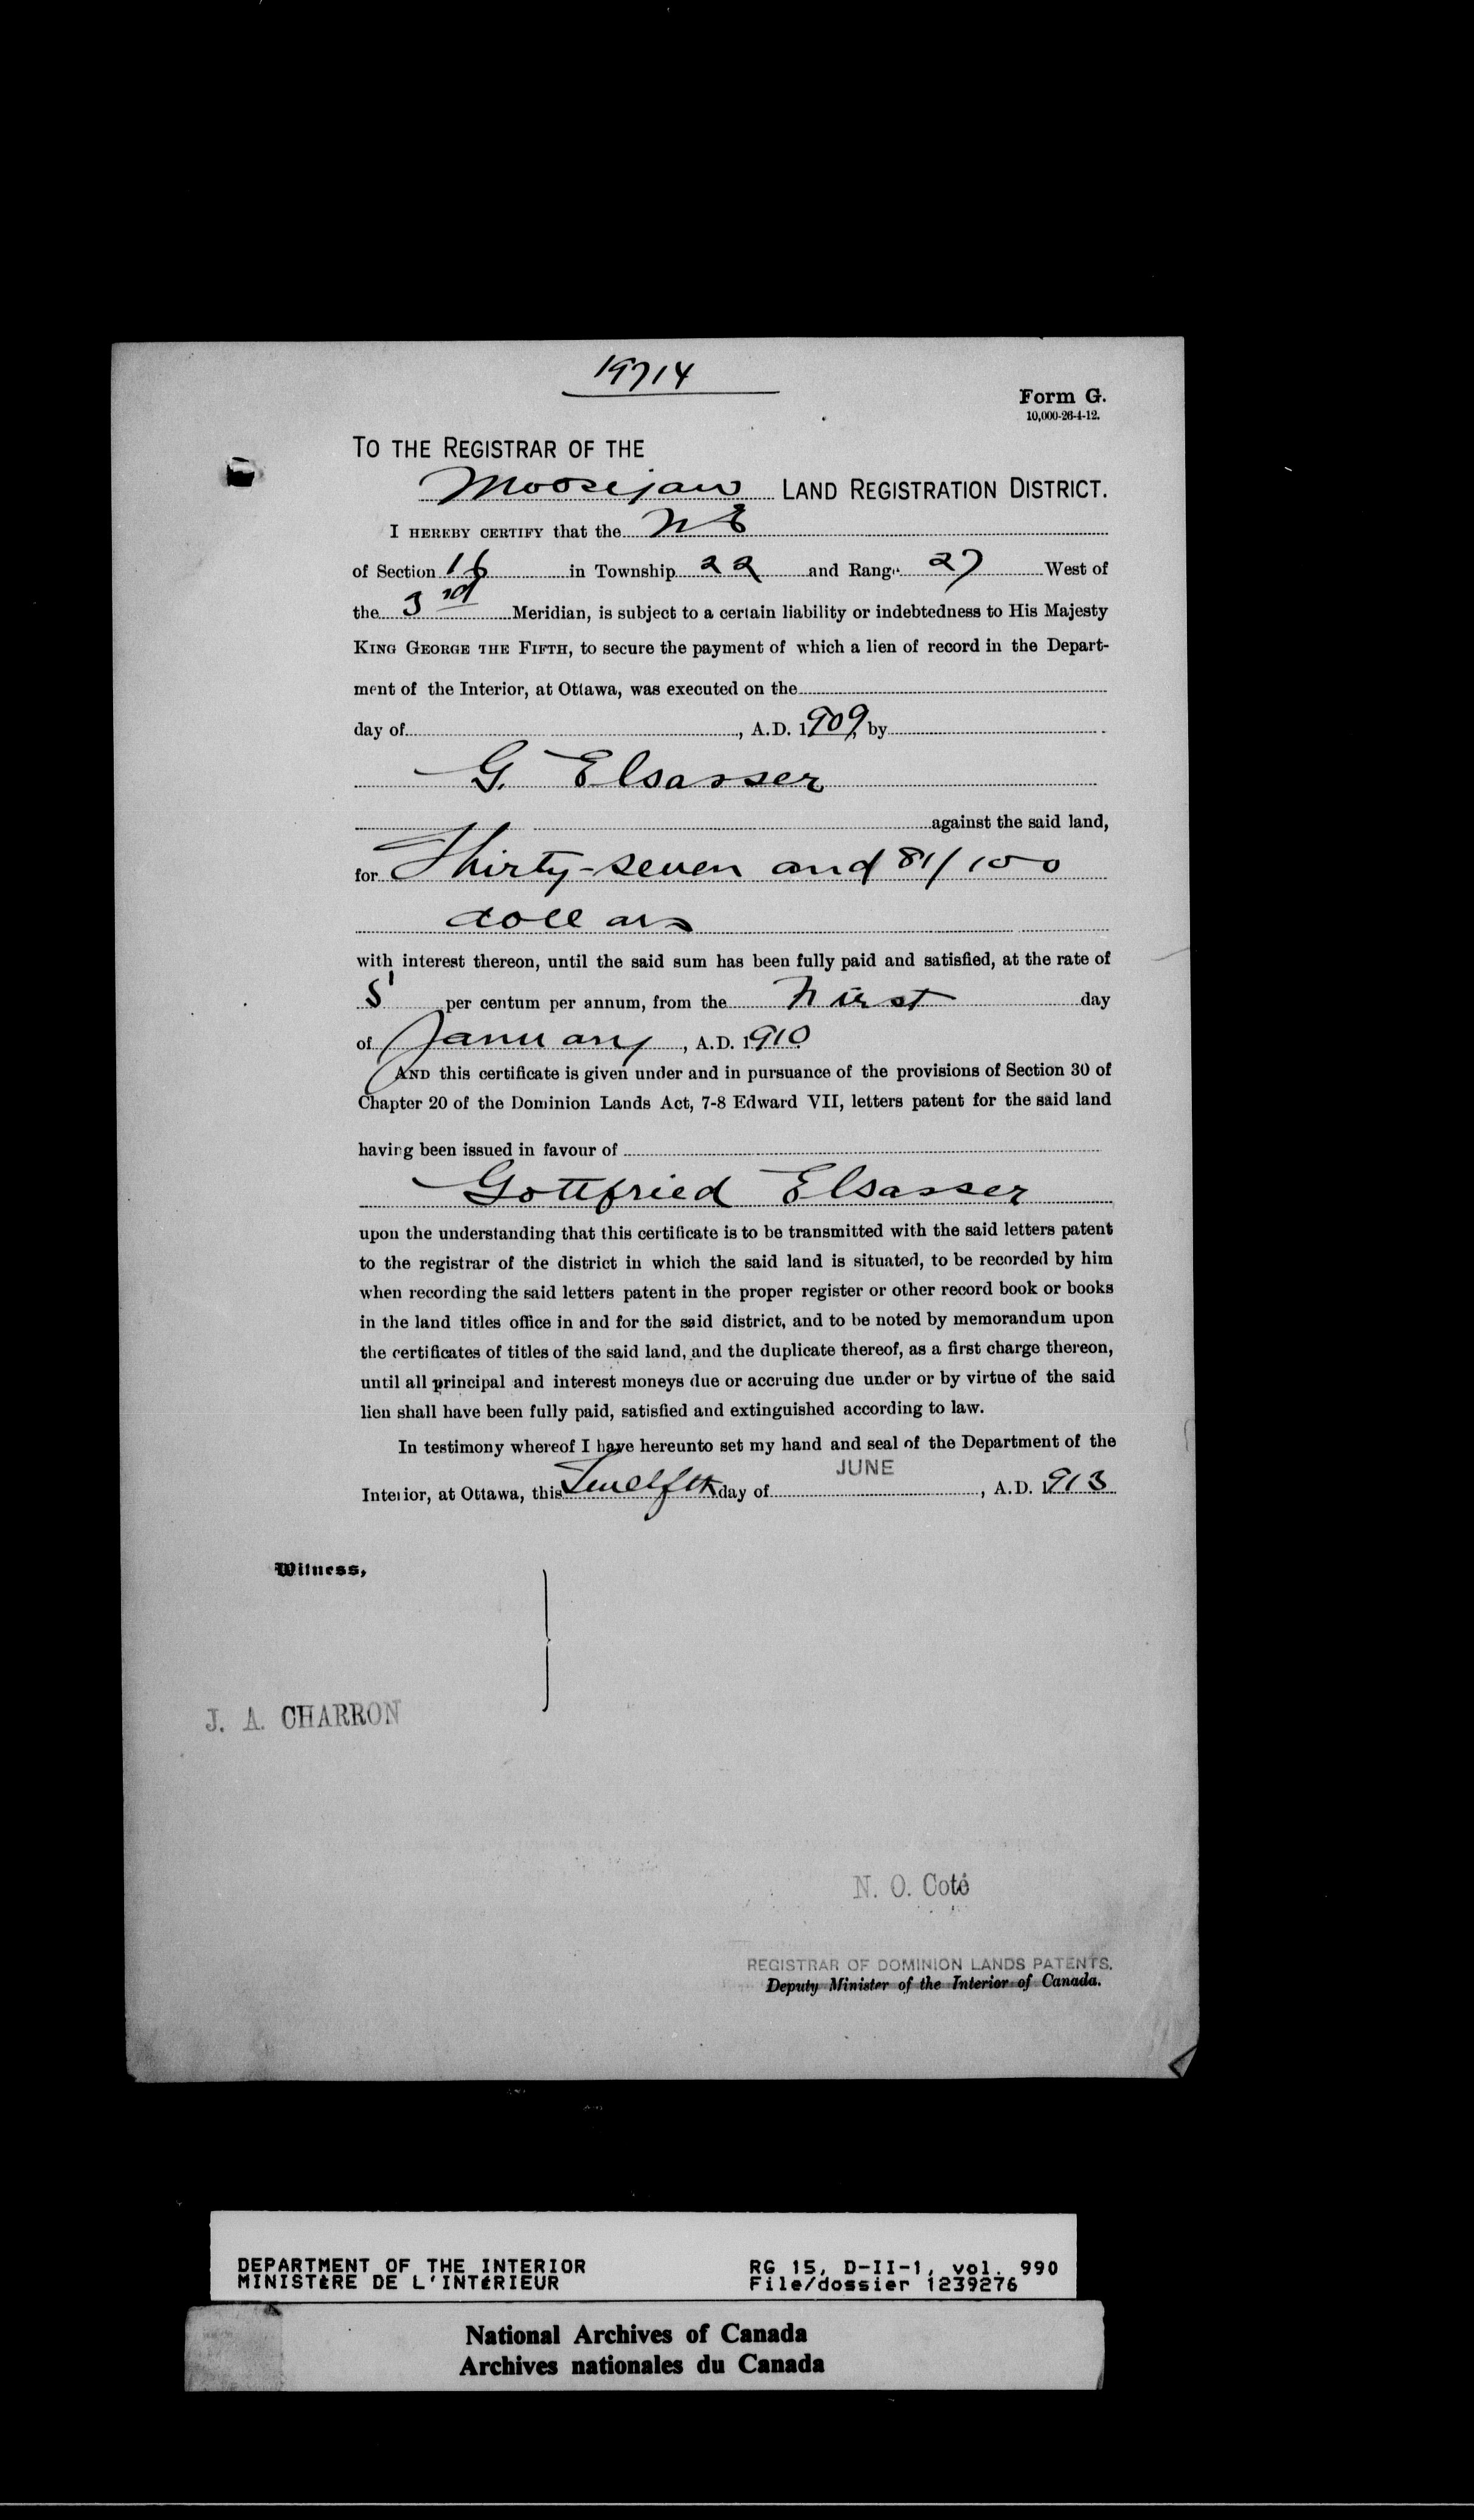 19714
Form G.
10,000-26-4-12.
TO THE REGISTRAR OF THE
Moosejaw LAND REGISTRATION DISTRICT.
I HEREBY CERTIFY that the N E
of Section 16 in Township 22 and Range 27 West of
the 3rd Meridian, is subject to a certain liability or indebtedness to His Majesty
KING GEORGE THE FIFTH, to secure the payment of which a lien of record in the Depart-
ment of the Interior, at Ottawa, was executed on the
day of , A.D. 1909, by
G. Elsasser
against the said land,
for Thirty-seven and 81/100
dollars
with interest thereon, until the said sum has been fully paid and satisfied, at the rate of
5 per centum per annum, from the first day
of January, A.D. 1910
AND this certificate is given under and in pursuance of the provisions of Section 30 of
Chapter 20 of the Dominion Lands Act, 7-8 Edward VII, letters patent for the said land
having been issued in favour of
Gottfried Elsasser
upon the understanding that this certificate is to be transmitted with the said letters patent
to the registrar of the district in which the said land is situated, to be recorded by him
when recording the said letters patent in the proper register or other record book or books
in the land titles office in and for the said district, and to be noted by memorandum upon
the certificates of titles of the said land, and the duplicate thereof, as a first charge thereon,
until all principal and interest moneys due or accruing due under or by virtue of the said
lien shall have been fully paid, satisfied and extinguished according to law.
In testimony whereof I have hereunto set my hand and seal of the Department of the
Interior, at Ottawa, this Twelfth day of JUNE, A.D. 1913
Witness,
J. A. CHARRON
N. O. Coté
REGISTRAR OF DOMINION LANDS PATENTS.
Deputy Minister of the Interior of Canada.
DEPARTMENT OF THE INTERIOR RG 15, D-II-1, vol. 990
MINISTÈRE DE L'INTÉRIEUR File/dossier 1239276
National Archives of Canada
Archives nationales du Canada